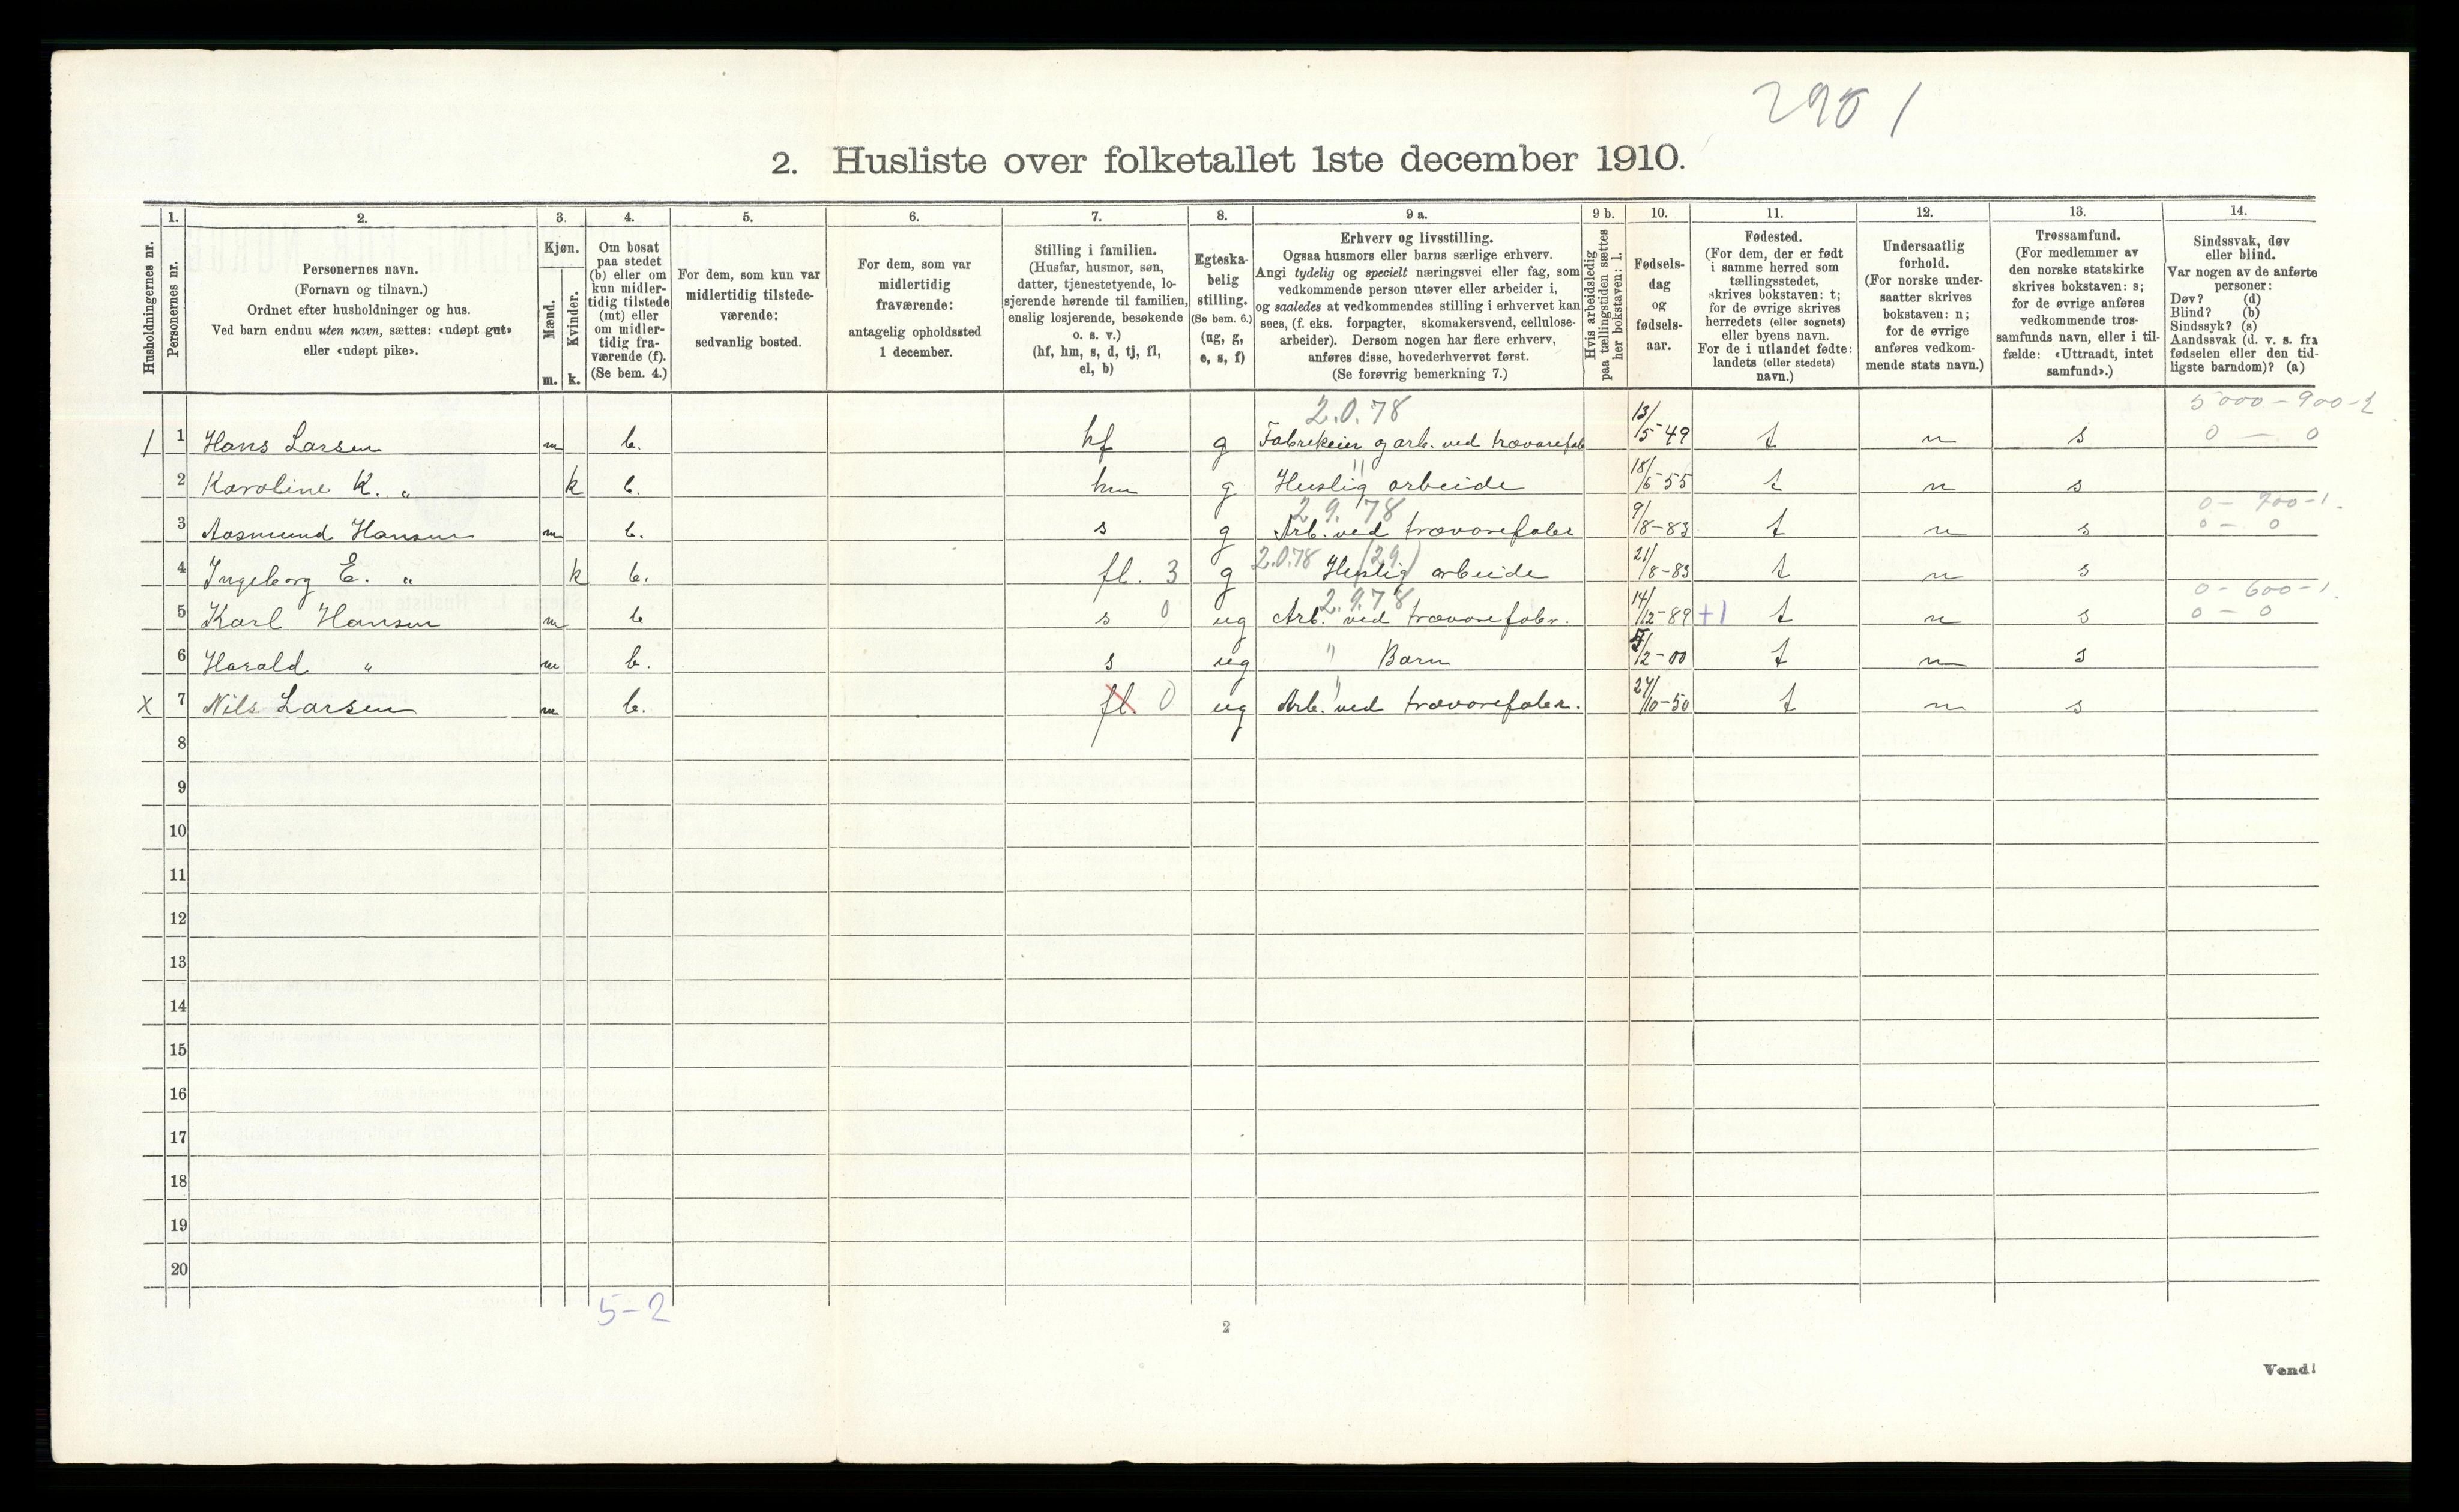 2901
2. Husliste over folketallet 1ste december 1910.
Husholdningernes nr.
1.
Personernes nr.
2.
Personernes navn.
(Fornavn og tilnavn.)
Ordnet efter husholdninger og hus.
Ved barn endnu uten navn, sættes: «udøpt gut»
eller «udøpt pike».
3.
Kjøn.
Mænd.
Kvinder.
m. k.
4.
Om bosat
paa stedet
(b) eller om
kun midler-
tidig tilstede
(mt) eller
om midler-
tidig fra-
værende (f).
(Se bem. 4.)
5.
For dem, som kun var
midlertidig tilstede-
værende:
sedvanlig bosted.
6.
For dem, som var
midlertidig
fraværende:
antagelig opholdssted
1 december.
7.
Stilling i familien.
(Husfar, husmor, søn,
datter, tjenestetyende, lo-
sjerende hørende til familien,
enslig losjerende, besøkende
o. s. v.)
(hf, hm, s, d, tj, fl,
el, b)
8.
Egteska-
belig
stilling.
(Se bem. 6.)
(ug, g,
e, s, f)
9 a.
Erhverv og livsstilling.
Ogsaa husmors eller barns særlige erhverv.
Angi tydelig og specielt næringsvei eller fag, som
vedkommende person utøver eller arbeider i,
og saaledes at vedkommendes stilling i erhvervet kan
sees, (f. eks. forpagter, skomakersvend, cellulose-
arbeider). Dersom nogen har flere erhverv,
anføres disse, hovederhvervet først.
(Se forøvrig bemerkning 7.)
9 b.
Hvis arbeidsledig
paa tællingstiden sættes
her bokstaven: l.
10.
Fødsels-
dag
og
fødsels-
aar.
11.
Fødested.
(For dem, der er født
i samme herred som
tællingsstedet,
skrives bokstaven: t;
for de øvrige skrives
herredets (eller sognets)
eller byens navn.
For de i utlandet fødte:
landets (eller stedets)
navn.)
12.
Undersaatlig
forhold.
(For norske under-
saatter skrives
bokstaven: n;
for de øvrige
anføres vedkom-
mende stats navn.)
13.
Trossamfund.
(For medlemmer av
den norske statskirke
skrives bokstaven: s;
for de øvrige anføres
vedkommende tros-
samfunds navn, eller i til-
fælde: «Uttraadt, intet
samfund».)
14.
Sindssvak, døv
eller blind.
Var nogen av de anførte
personer:
Døv? (d)
Blind? (b)
Sindssyk? (s)
Aandssvak (d. v. s. fra
fødselen eller den tid-
ligste barndom)? (a)
2.0.78 5000 - 900 - 2
1 1 Hans Larsen m b. hf g Fabrikeier og arb. ved trævarefab 13/5-49 t n s 0 — 0
2 Karoline K. " k b. hm g Huslig arbeide 18/6-55 t n s
2.9.78 0 - 700 - 1.
3 Aasmund Hansen m b. s g Arb. ved trævarefabr 9/8-83 t n s 0 — 0
4 Ingeborg E. " k b. fl. 3 g 2.0.78 (2.9.) Huslig arbeide 21/8-83 t n s
2.9.78 0 - 600 - 1.
5 Karl Hansen m b s 0 ug Arb. ved trævarefabr. 14/12-89 +1 t n s 0 — 0
6 Harald " m b. s ug " Barn /2-00 t n s
x 7 Nils Larsen m b. fl. 0 ug Arb. ved trævarefabr. 24/10-50 t n s
8
9
10
11
12
13
14
15
16
17
18
19
20
5-2
2
Vend!